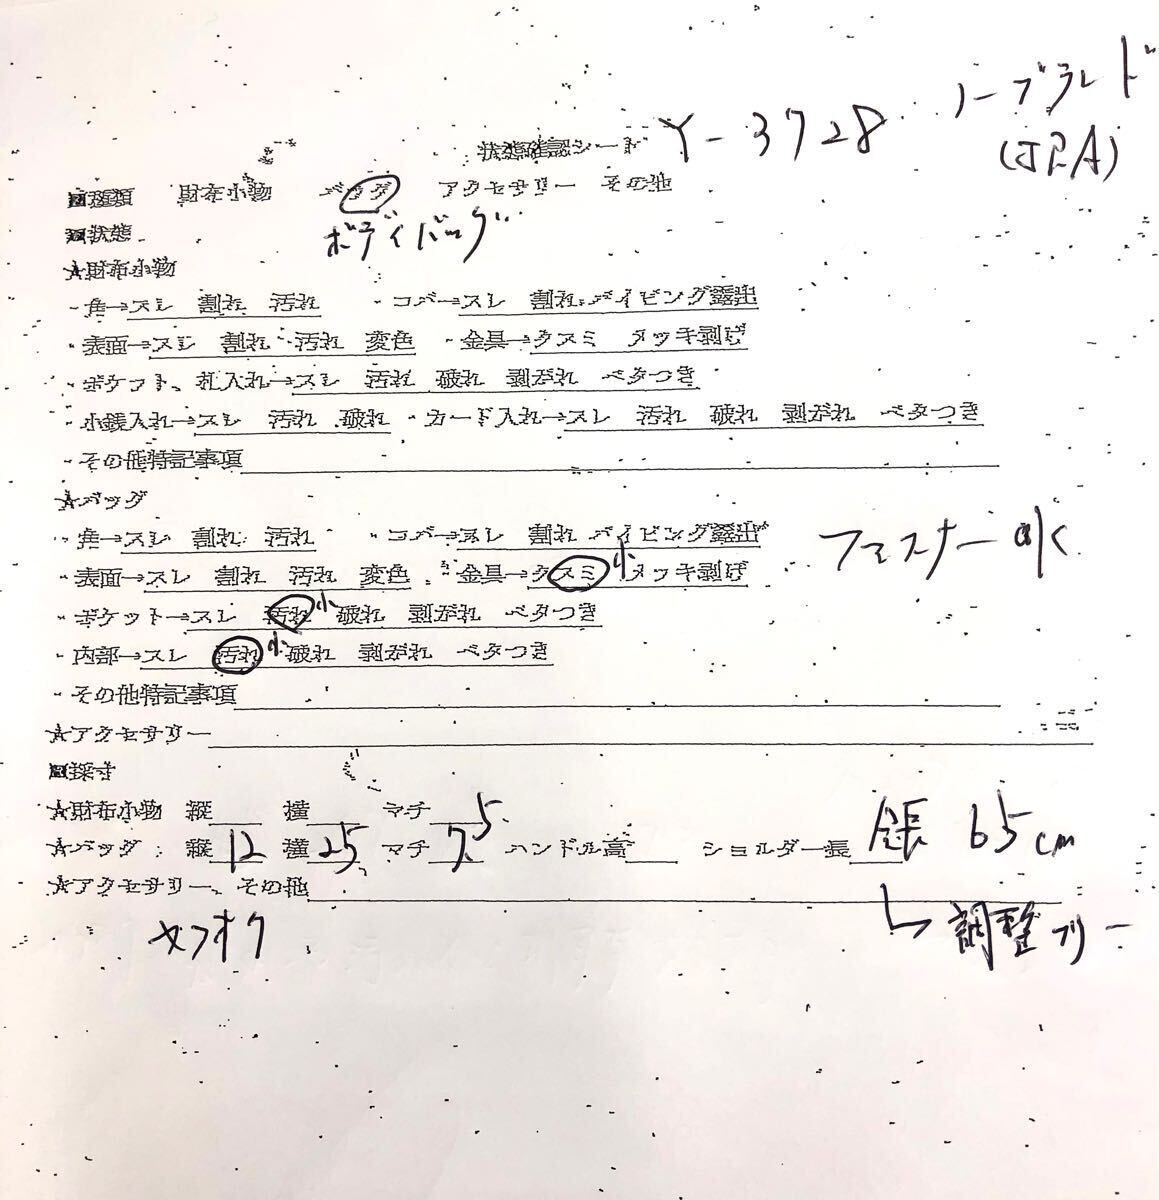 ノーブランド
(JRA)
状態確認シート Y-3728
■種類 財布小物 バッグ アクセサリー その他
■状態 ボディバッグ
★財布小物
・角→スレ 割れ 汚れ ・コバ→スレ 割れ パイピング露出
・表面→スレ 割れ 汚れ 変色 ・金具→クスミ メッキ剥げ
・ポケット、札入れ→スレ 汚れ 破れ 剥がれ ベタつき
・小銭入れ→スレ 汚れ 破れ ・カード入れ→スレ 汚れ 破れ 剥がれ ベタつき
・その他特記事項
★バッグ
・角→スレ 割れ 汚れ ・コバ→スレ 割れ パイピング露出 ファスナー
・表面→スレ 割れ 汚れ 変色 ・金具→クスミ小 メッキ剥げ
・ポケット→スレ 汚れ小 破れ 剥がれ ベタつき
・内部→スレ 汚れ小 破れ 剥がれ ベタつき
・その他特記事項
★アクセサリー
■採寸
★財布小物 縦 横 マチ
★バッグ 縦12 横25 マチ7.5 ハンドル高 ショルダー長 全長 65cm
★アクセサリー、その他
ヤフオク 調整フリー